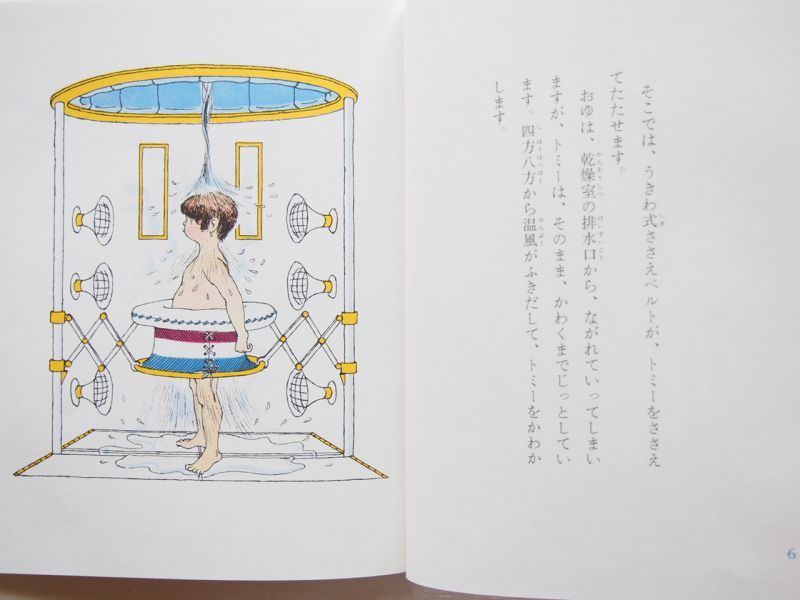 そこでは、うきわ式ささえベルトが、トミーをささえ
てたたせます。
おゆは、乾燥室の排水口から、ながれていってしまい
ますが、トミーは、そのまま、かわくまでじっとしてい
ます。四方八方から温風がふきだして、トミーをかわか
します。
6